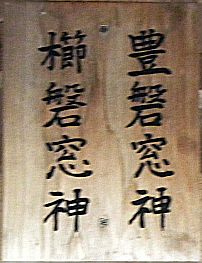 豊磐窓神
櫛磐窓神